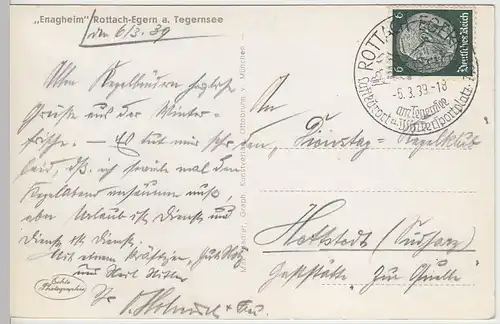 „Enagheim“ Rottach-Egern a. Tegernsee
den 6/3. 39
Allen Kegelbrüdern herzliche
Grüße aus der Winter-
frische. — Es tut mir sehr
leid, daß ich soviele mal den
Kegelabend versäumen muß,
aber Urlaub ist Dienst und
Dienst ist Dienst.
Mit einem kräftigen „Gut Holz“
und Heil Hitler
Ihr
+ Frau
Echte
Photographie
Graph. Kunstverlag, Ottobrunn v. München
ROTTACH-EGERN
-6.3.39-18
am Tegernsee
Luftkurort u. Wintersportplatz
6 Deutsches Reich 6
An
den Dienstag-Kegelklub
Hettstedt (Südharz)
Gaststätte „Zur Quelle“